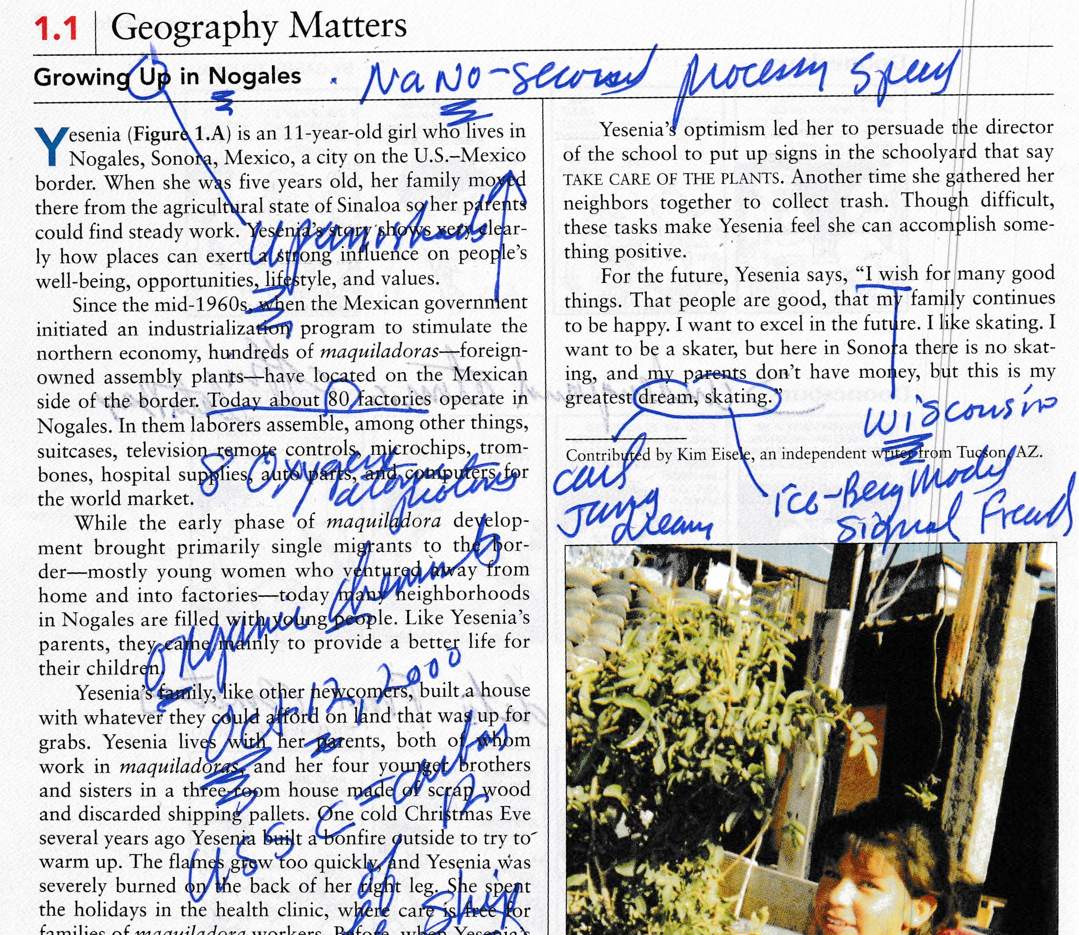 1.1 Geography Matters
Growing Up in Nogales
. NaNo-second process Speed
Yesenia (Figure 1.A) is an 11-year-old girl who lives in
Nogales, Sonora, Mexico, a city on the U.S.–Mexico
border. When she was five years old, her family moved
there from the agricultural state of Sinaloa so her parents
could find steady work. Yesenia's story shows very clear-
ly how places can exert a strong influence on people's
well-being, opportunities, lifestyle, and values.
Upanishads
Since the mid-1960s, when the Mexican government
initiated an industrialization program to stimulate the
northern economy, hundreds of maquiladoras—foreign-
owned assembly plants—have located on the Mexican
side of the border. Today about 80 factories operate in
Nogales. In them laborers assemble, among other things,
suitcases, television remote controls, microchips, trom-
bones, hospital supplies, auto parts, and computers for
the world market.
8 Oxygen
While the early phase of maquiladora develop-
ment brought primarily single migrants to the bor-
der—mostly young women who ventured away from
home and into factories—today many neighborhoods
in Nogales are filled with young people. Like Yesenia's
parents, they came mainly to provide a better life for
their children.
Organic
Yesenia's family, like other newcomers, built a house
with whatever they could afford on land that was up for
grabs. Yesenia lives with her parents, both of whom
work in maquiladoras, and her four younger brothers
and sisters in a three-room house made of scrap wood
and discarded shipping pallets. One cold Christmas Eve
several years ago Yesenia built a bonfire outside to try to
warm up. The flames grew too quickly, and Yesenia was
severely burned on the back of her right leg. She spent
the holidays in the health clinic, where care is free for
families of maquiladora workers. Before, when Yesenia's
Oct 12, 2000
USS C = Carbon
12
of
Ship
Yesenia's optimism led her to persuade the director
of the school to put up signs in the schoolyard that say
TAKE CARE OF THE PLANTS. Another time she gathered her
neighbors together to collect trash. Though difficult,
these tasks make Yesenia feel she can accomplish some-
thing positive.
For the future, Yesenia says, “I wish for many good
things. That people are good, that my family continues
to be happy. I want to excel in the future. I like skating. I
want to be a skater, but here in Sonora there is no skat-
ing, and my parents don't have money, but this is my
greatest dream, skating.”
Wisconsin
Contributed by Kim Eisele, an independent writer from Tucson, AZ.
Carl
Jung
dream
ico-Berg Model
Sigmund Freud